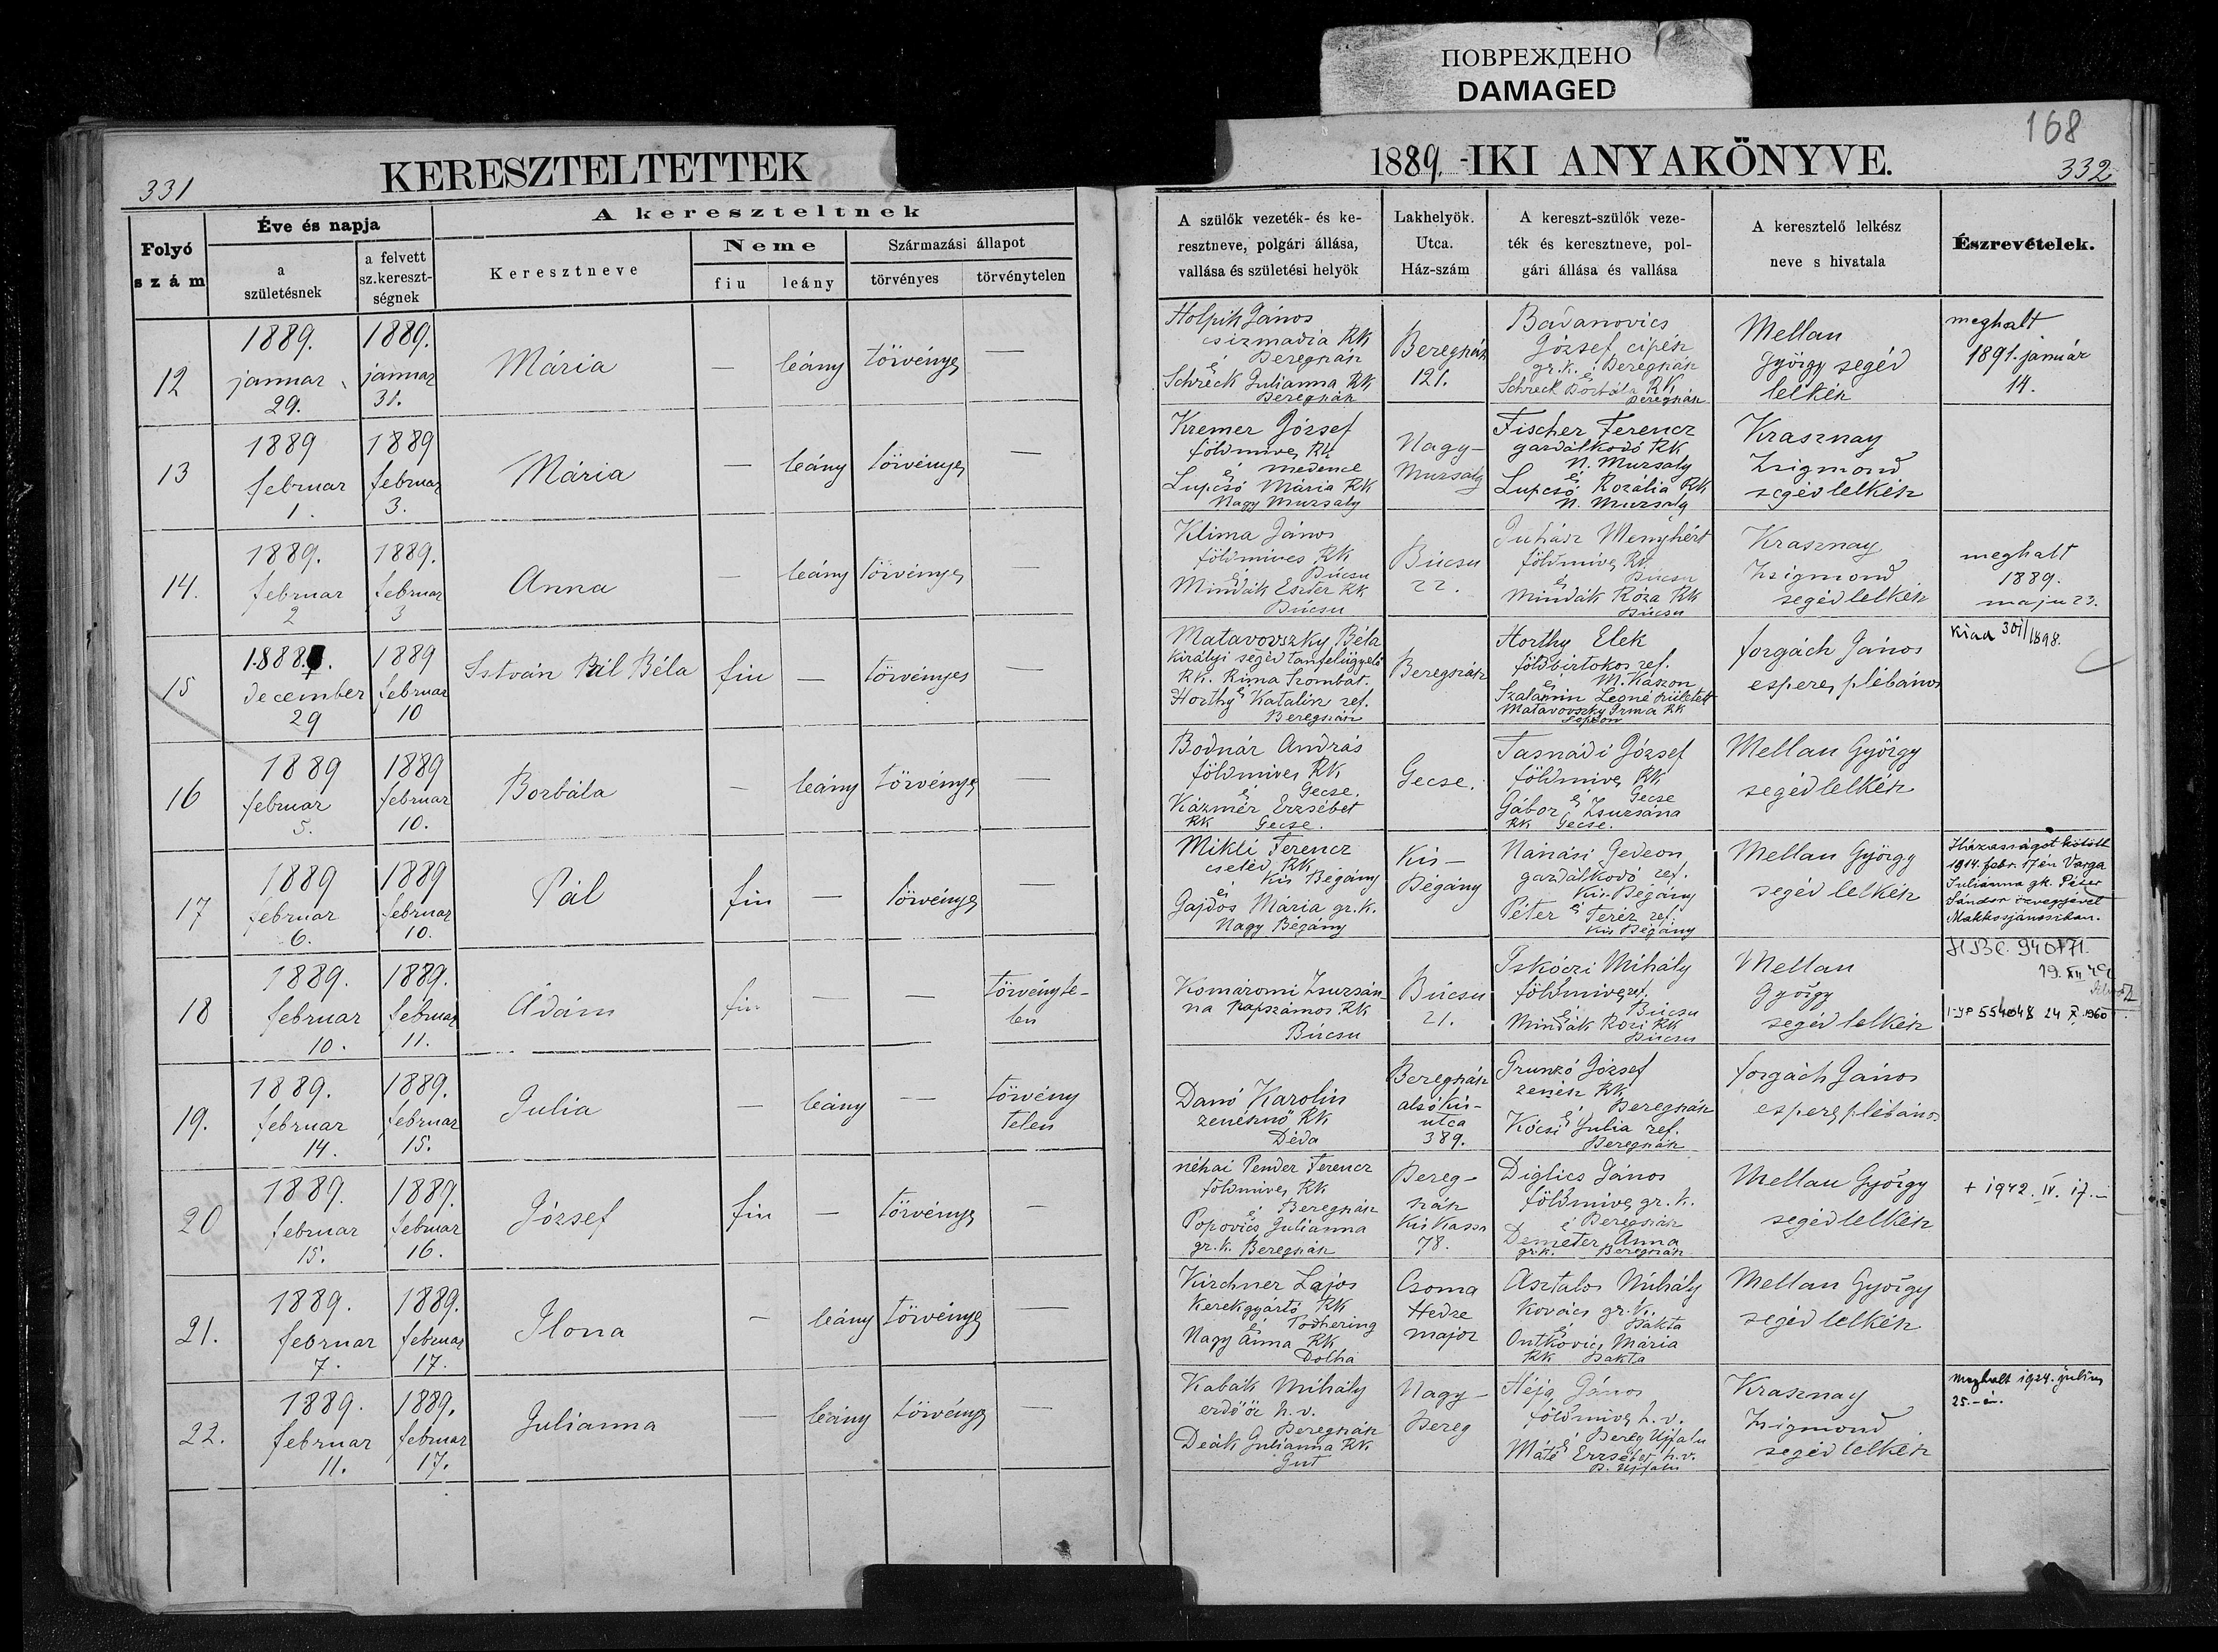 ПОВРЕЖДЕНО
DAMAGED
168
331
KERESZTELTETTEK
1889. -IKI ANYAKÖNYVE.
332.
Folyó
szám
Éve és napja
a
születésnek
a felvett
sz.kereszt-
ségnek
A kereszteltnek
Keresztneve
Neme
fiu
leány
Származási állapot
törvényes
törvénytelen
A szülők vezeték- és ke-
resztneve, polgári állása,
vallása és születési helyök
Lakhelyök.
Utca.
Ház-szám
A kereszt-szülők veze-
ték és keresztneve, pol-
gári állása és vallása
A keresztelő lelkész
neve s hivatala
Észrevételek.
12
1889.
januar
29.
1889.
januar
31.
Mária
—
leány
törvényes
—
Holpik János
csizmadia RK
Beregszász
és
Schreck Julianna RK
Beregszász
Beregszász
121.
Badanovics
József cipész
gr.k. Beregszász
és
Schreck Borbála RK
Beregszász
Mellau
György segéd
lelkész
meghalt
1891. január
14.
13
1889
februar
1.
1889
februar
3.
Mária
—
leány
törvényes
—
Kremer József
földmives RK
és Medence
Lupcsó Mária RK
Nagy Muzsaly
Nagy-
Muzsaly
Fischer Ferencz
gazdálkodó RK
N. Muzsaly
és
Lupcsó Rozália RK
N. Muzsaly
Krasznay
Zsigmond
segédlelkész
14.
1889.
februar
2
1889.
februar
3
Anna
—
leány
törvényes
—
Klima János
földmives RK
és Búcsu
Mindák Eszter RK
Búcsu
Búcsu
22.
Juhász Menyhért
földmives RK
Búcsu
és
Mindák Róza RK
Búcsu
Krasznay
Zsigmond
segédlelkész
meghalt
1889.
maju 23.
15
1888.
december
29
1889
februar
10
István Pál Béla
fiu
—
törvényes
Matavovszky Béla
Királyi segéd tanfelügyelő
RK. Rima Szombat.
és
Horthy Katalin ref.
Beregszász
Beregszász
Horthy Elek
földbirtokos ref.
és M. Kászon
Szalamin Leoné született
Matavovszky Irma RK
Forgách János
esperes plébános
Kiad 30/I 1898.
16
1889
februar
5.
1889
februar
10.
Borbála
—
leány
törvényes
—
Bodnár András
földmives RK
és Gecse.
Kázmér Erzsébet
RK Gecse.
Gecse.
Tasnádi József
földmives RK
és Gecse
Gábor Zsuzsána
RK Gecse.
Mellau György
segédlelkész
17
1889
februar
6.
1889
februar
10.
Pál
fiu
—
törvényes
—
Mikli Ferencz
cseléd RK
Kis Bégány
és
Gajdos Mária gr.k.
Nagy Bégány
Kis-
Bégány
Nánási Gedeon
gazdálkodó ref.
Kis Bégány
Péter és Teréz ref.
Kis Bégány
Mellau György
segéd lelkész
Házasságot kötött
1914. febr. 17én Varga
Julianna gk. Péter
Sándor özvegyével
Makkosjánosiban.
18
1889.
februar
10.
1889.
februar
11.
Ádám
fiu
—
törvényte-
len
Komáromi Zsuzsán-
na napszámos RK
Búcsu
Búcsu
21.
Iskóczi Mihály
földmives ref.
és Búcsu
Mindák Rozi RK
Búcsu
Mellau
György
segéd lelkész
554048 24 X 1960
19.
1889.
februar
14.
1889.
februar
15.
Julia
—
leány
—
törvény
telen
Danó Karolin
zenésznő RK
Déda
Beregszász
alsó kis-
utca
389.
Grunzó József
zenész RK
és Beregszász
Kócsi Julia ref.
Beregszász
Forgách János
esperes plébános
20
1889.
februar
15.
1889.
februar
16.
József
fiu
—
törvényes
—
néhai Pender Ferencz
földmives RK
és Beregszász
Popovics Julianna
gr.k. Beregszász
Bereg-
szász
Kis Kaszó
78.
Diglics János
földmives gr.k.
és Beregszász
Demeter Anna
gr.k. Beregszász
Mellau György
segédlelkész
+ 1942. IV. 17.-
21.
1889.
februar
7.
1889.
februar
17.
Ilona
—
leány
törvényes
—
Kirchner Lajos
Kerekgyártó RK
és
Nagy Anna RK
Dolha
Csoma
Hedre
major
Asztalos Mihály
Kovács gr.k.
és Bakta
Ontkovics Mária
RK Bakta
Mellau György
segéd lelkész
22.
1889.
februar
11.
1889.
februar
17.
Julianna
—
leány
törvényes
—
Kabák Mihály
erdőőr h.v.
Beregszász
Deák Julianna RK
Gut
Nagy-
Bereg
Héja János
földmives h.v.
és Bereg Ujfalu
Máté Erzsébet h.v.
B. Ujfalu
Krasznay
Zsigmond
segéd lelkész
Meghalt 1924. julius
25.-én.